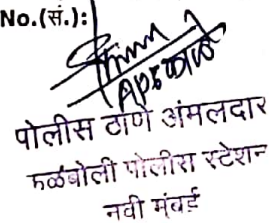 No.(सं.):
पोलीस ठाणे अंमलदार
कळंबोली पोलीस स्टेशन
नवी मुंबई